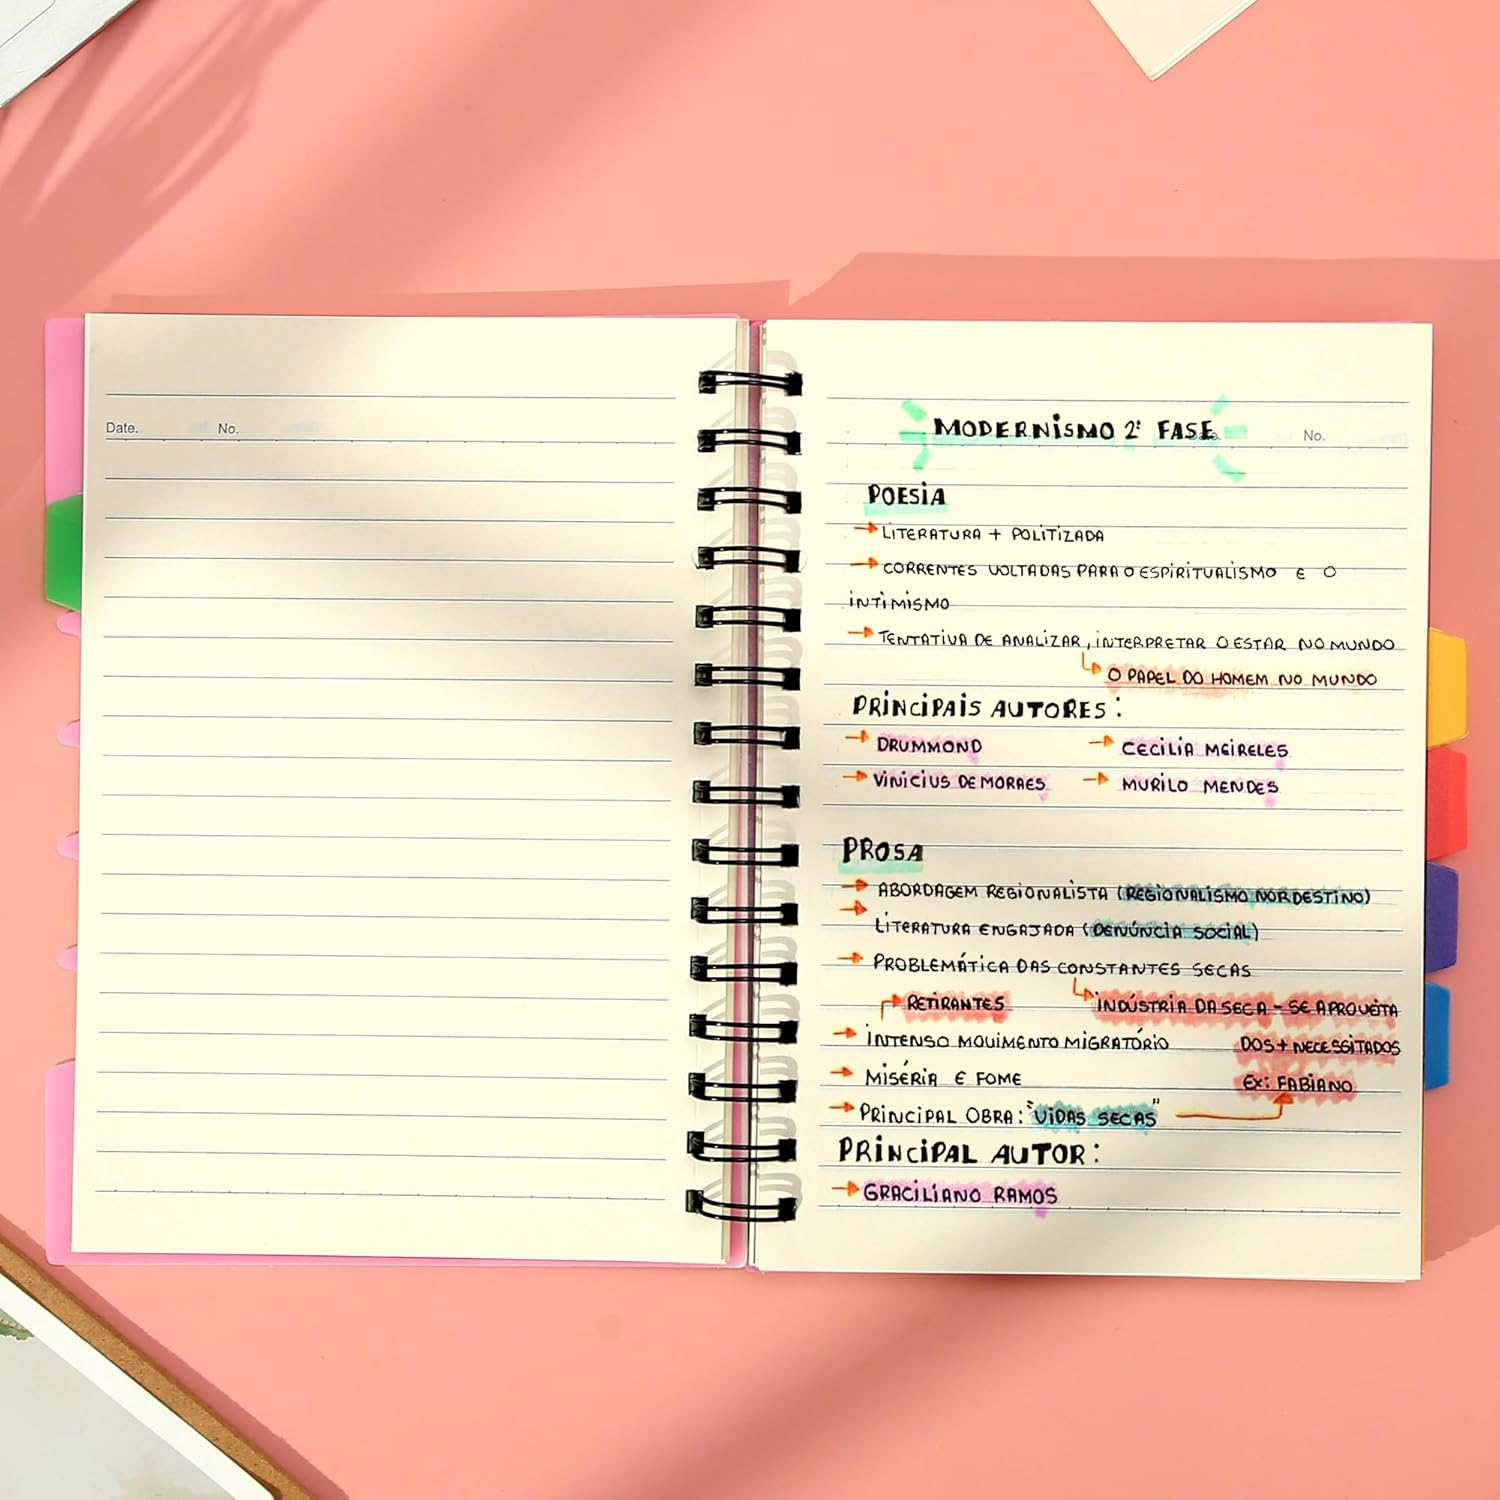 Date. No.
MODERNISMO 2ª FASE No.
POESIA
→ LITERATURA + POLITIZADA
→ CORRENTES VOLTADAS PARA O ESPIRITUALISMO E O
INTIMISMO
→ TENTATIVA DE ANALIZAR, INTERPRETAR O ESTAR NO MUNDO
↳ O PAPEL DO HOMEM NO MUNDO
PRINCIPAIS AUTORES:
→ DRUMMOND → CECILIA MEIRELES
→ VINICIUS DE MORAES → MURILO MENDES
PROSA
→ ABORDAGEM REGIONALISTA (REGIONALISMO NORDESTINO)
→ LITERATURA ENGAJADA (DENÚNCIA SOCIAL)
→ PROBLEMÁTICA DAS CONSTANTES SECAS
RETIRANTES ↳ INDÚSTRIA DA SECA - SE APROVEITA
→ INTENSO MOVIMENTO MIGRATÓRIO DOS + NECESSITADOS
→ MISÉRIA E FOME EX: FABIANO
→ PRINCIPAL OBRA: "VIDAS SECAS"
PRINCIPAL AUTOR:
→ GRACILIANO RAMOS